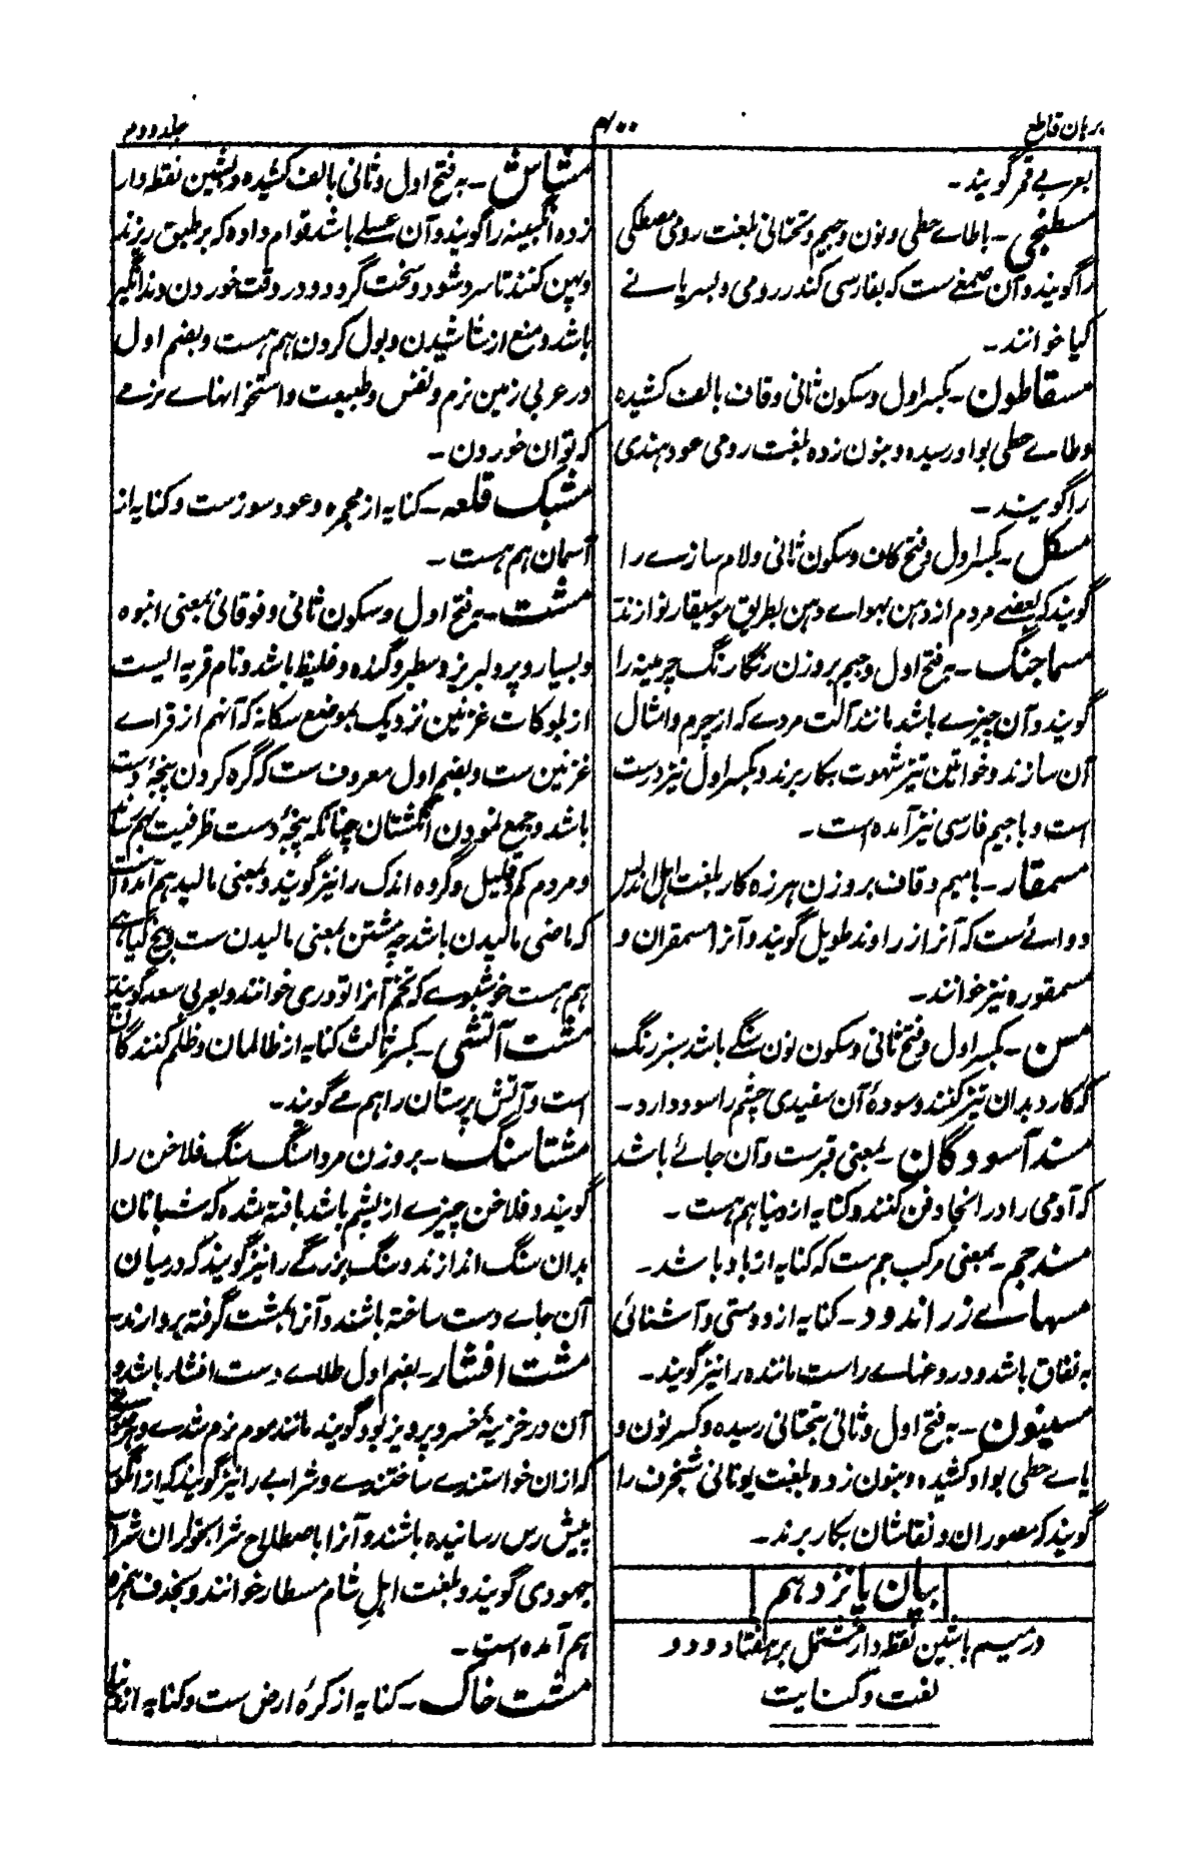 برهان قاطع
۴۰۰
جلد دوم
بعربے قمر گویند۔
مسطنجی۔ باطاے حطی و نون و جیم و تحتانی بلغت رومی مصطکی
را گویند و آن صمغے ست که بفارسی کندر رومی و بسریانے
کیا خوانند۔
مسقاطون۔ بکسر اول و سکون ثانی و قاف بالف کشیده
و طاے حطی بواو رسیده و بنون زده بلغت رومی عود هندی
را گویند۔
مسکل۔ بکسر اول و فتح کاف و سکون ثانی و لام سازے را
گویند که بعضے مردم از دهن بهواے دهن بطریق موسیقار نوازند
مسماجنگ۔ بفتح اول و جیم بر وزن رنگارنگ چرمینه را
گویند و آن چیزے باشد مانند آلت مردے که از چرم و امثال
آن سازند و خواتین تیز شهوت بکار برند و بکسر اول نیز درست
است و با جیم فارسی نیز آمده است۔
مسمقار۔ با میم و قاف بر وزن هرزه کار بلغت اهل اندلس
دوائے ست که آنرا زراوند طویل گویند و آنرا مسمقران و
مسمقوره نیز خوانند۔
مسن۔ بکسر اول و فتح ثانی و سکون نون سنگے باشد سبز رنگ
که کارد بدان تیز کنند و سودهٔ آن سفیدی چشم را سود دارد۔
مسند آسودگان۔ بمعنی قبرست و آن جائے باشد
که آدمی را در انجا دفن کنند و کنایه از دنیا هم هست۔
مسند جم۔ بمعنی مرکب جم ست که کنایه از باد باشد۔
مسهاے زر اندود۔ کنایه از دوستی و آشنائی
به نفاق باشد و دروغهاے راست مانند را نیز گویند۔
مسینون۔ به فتح اول و ثانی بتحتانی رسیده و کسر نون و
یاے حطی بواو کشیده و بنون زده بلغت یونانی شنجرف را
گویند که مصوران و نقاشان بکار برند۔
بیان پانزدهم
در میم با شین نقطه دار مشتمل بر هفتاد و دو
لغت و کنایت
مشاش۔ به فتح اول و ثانی بالف کشیده و بشین نقطه دار
زده انگبینه را گویند و آن عسلے باشد قوام داده که بر طبق ریزند
و پهن کنند تا سرد شود و سخت گردد و در وقت خوردن دندانگیر
باشد و منع از شاشیدن و بول کردن هم هست و بضم اول
در عربی زمین نرم و نفس و طبیعت و استخوانهاے نرمے
که توان خوردن۔
مشبک قلعه۔ کنایه از مجمره و عود سوزست و کنایه از
آسمان هم هست۔
مشت۔ به فتح اول و سکون ثانی و فوقانی بمعنی انبوه
و بسیار و پر و لبریز و سطبر و گنده و غلیظ باشد و نام قریه ایست
از بلوکات غزنین نزدیک بموضع سکانه که آنهم از قراے
غزنین ست و بضم اول معروف ست که گره کردن پنجهٔ دست
باشد و جمع نمودن انگشتان چنانکه پنجهٔ دست ظرفیت بهم
و مردم کم و قلیل و گروه اندک را نیز گویند و بمعنی مالید هم آمده است
که ماضی مالیدن باشد چه مشتن بمعنی مالیدن ست و بیخ گیاهے
هم هست خوشبوے که تخم آنرا تودری خوانند و بعربی سعد گویند
مشت آتشی۔ بکسر ثالث کنایه از ظالمان و ظلم کنندگان
است و آتش پرستان را هم مے گویند۔
مشتاسنگ۔ بر وزن مرداسنگ سنگ فلاخن را
گویند و فلاخن چیزے از پشم باشد بافته شده که شبانان
بدان سنگ اندازند و سنگ بزرگے را نیز گویند که در میان
آن جاے دست ساخته باشند و آنرا بمشت گرفته بردارند۔
مشت افشار۔ بضم اول طلاے دست افشار باشد و
آن در خزینهٔ خسرو پرویز بود گویند مانند موم نرم شدے و هر
که از ان خواستندے ساختندے و شرابے را نیز گویند که از انگور
پیش رس رسانیده باشند و آنرا باصطلاح شرابخواران شراب
جهودی گویند و بلغت اهل شام مسطار خوانند و بحذف همزه
هم آمده است۔
مشت خاک۔ کنایه از کرهٔ ارض ست و کنایه از دنیا